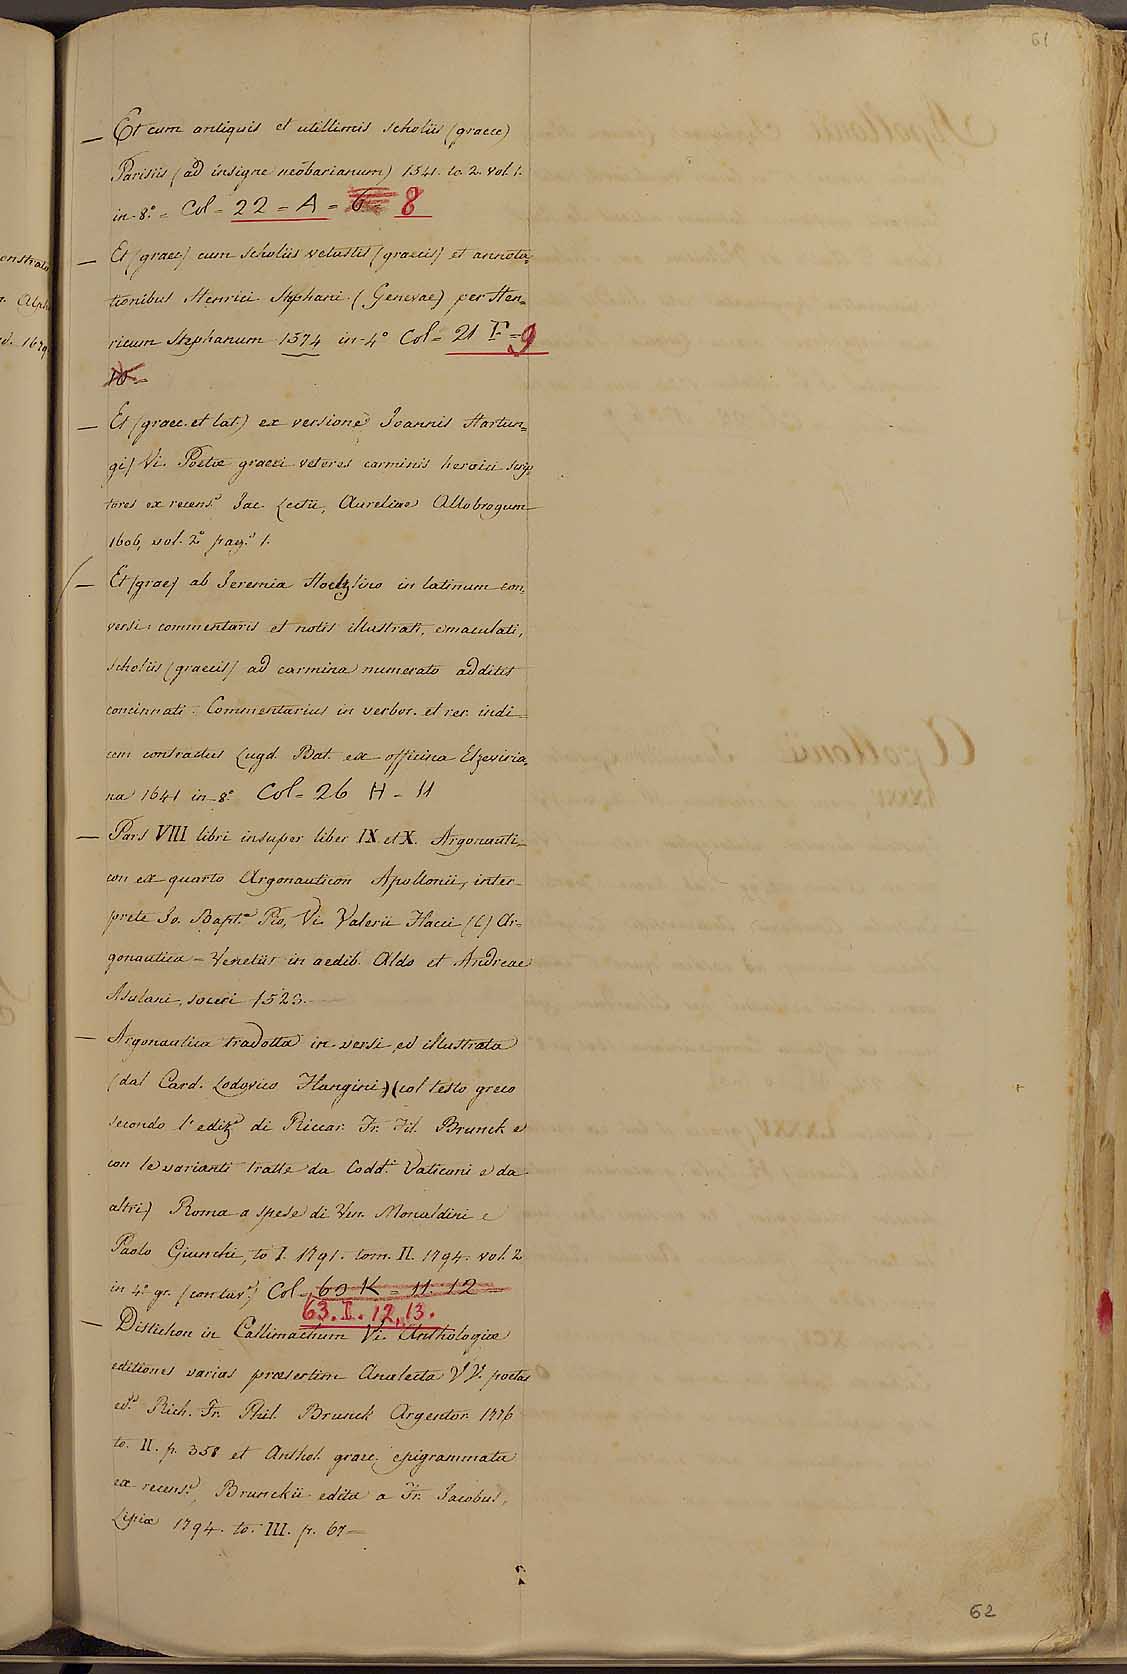 61
— Et cum antiquis et utillimis scholiis (graece)
Parisiis (ad insigne neobarianum) 1541. to. 2. vol. 1.
in-8.° = Col = 22 = A = 6 = 8
— Et (graec) cum scholiis vetustis (graecis) et annota=
tionibus Henrici Stephani. (Genevae) per Hen=
ricum Stephanum 1574 in-4° Col = 21 F = 9
10 =
— Et (graec. et lat.) ex versione Joannis Hartun=
gi) Vi. Poetae graeci veteres carminis heroici scrip=
tores ex recens.e Jac. Lectii, Aureliae Allobrogum
1606, vol. 2° pag.e 1.
— Et (graec) ab Jeremia Hoeltzlino in latinum con=
versi: commentaris et notis illustrati, emaculati,
scholiis (graecis) ad carmina numerato additis
concinnati. Commentarius in verbor. et rer. indi=
cem contractus Lugd. Bat. ex officina Elzeviria=
na 1641 in-8.° Col = 26 H - 11
— Pars VIII libri insuper liber IX. et X. Argonauti=
con ex quarto Argonauticon Apollonii, inter=
prete Jo. Bapt.a Pio, Vi. Valerii Flacci (C) Ar=
gonautica - Venetiis in aedib. Aldo et Andreae
Asulani, soceri 1523.
— Argonautica tradotta in versi, ed illustrata
(dal Card. Lodovico Flangini) (col testo greco
secondo l'ediz.e di Riccar. Fr. Fil. Brunck e
con le varianti tratte da Codd.i Vaticani e da
altri) Roma a spese di Ven. Monaldini e
Paolo Giunchi, to I. 1791. tom. II. 1794. vol. 2
in 4° gr. (con tav.e) Col = 60 K = 11. 12
63. I. 12, 13.
— Distichon in Callimachum Vi. Anthologiae
editiones varias praesertim Analecta VV. poetar
ed.e Rich. Fr. Phil. Brunck Argentor. 1776
to. II. p. 358 et Anthol. graec. epigrammata
ex recens.e Brunckii edita a Fr. Jacobus,
Lipiae 1794. to. III. p. 67 —
62